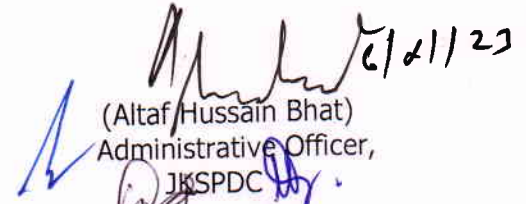 (Altaf Hussain Bhat)
Administrative Officer,
JKSPDC